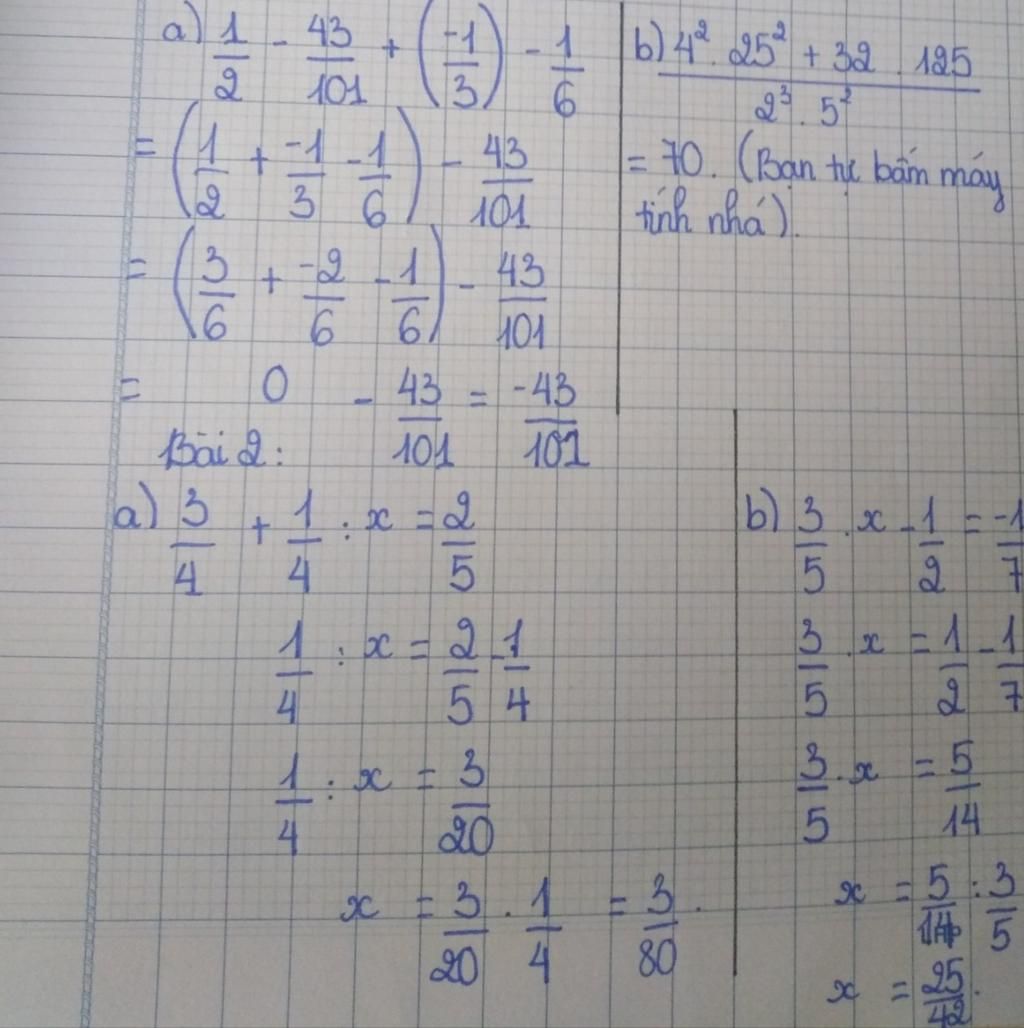 a) 1/2 - 43/101 + (-1/3) - 1/6
= (1/2 + -1/3 - 1/6) - 43/101
= (3/6 + -2/6 - 1/6) - 43/101
= 0 - 43/101 = -43/101
b) 4² . 25² + 32 . 125 / 2³ . 5²
= 70. (Bạn tự bấm máy
tính nhá).
Bài 2:
a) 3/4 + 1/4 : x = 2/5
1/4 : x = 2/5 - 1/4
1/4 : x = 3/20
x = 3/20 . 1/4 = 3/80.
b) 3/5 . x - 1/2 = -1/7
3/5 . x = 1/2 - 1/7
3/5 . x = 5/14
x = 5/14 : 3/5
x = 25/42.